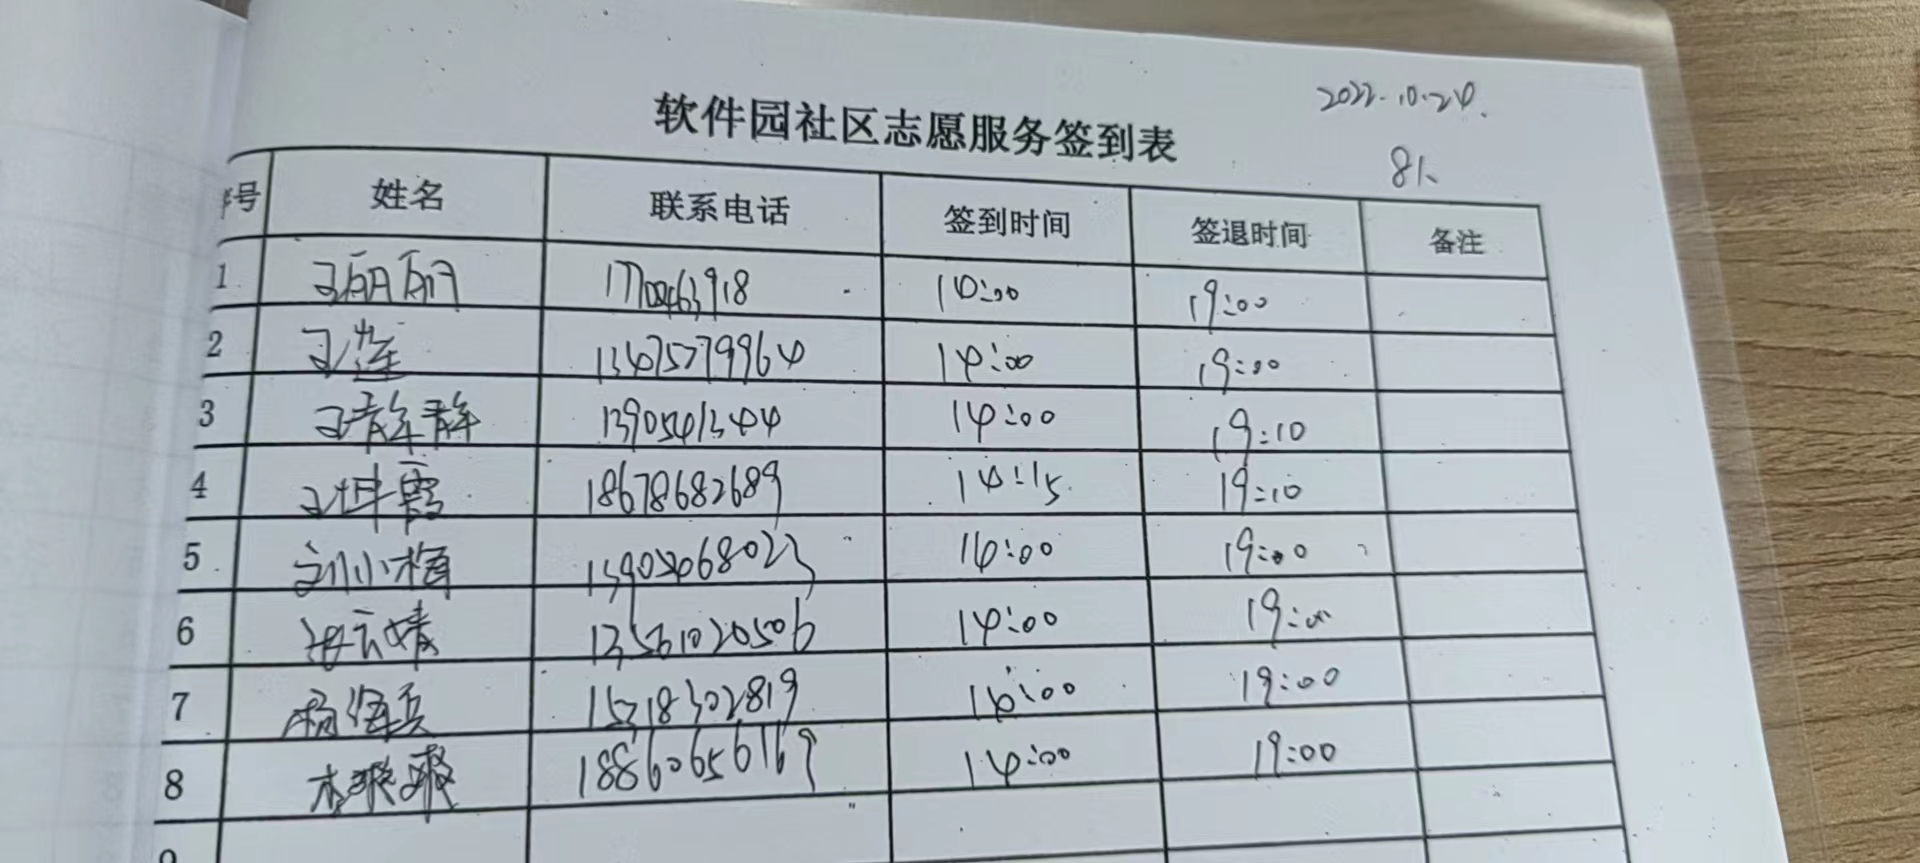 2022.10.24.
软件园社区志愿服务签到表
81、
号 姓名 联系电话 签到时间 签退时间 备注
1 王丽丽 14:00 19:00
2 王莲 13475779964 14:00 19:00
3 王静静 14:00 19:10
4 王坤霞 18678682689 14:15 19:10
5 刘小梅 14:00 19:00
6 13561020506 14:00 19:00
7 杨海兵 15318302819 14:00 19:00
8 18860656169 14:00 19:00
9